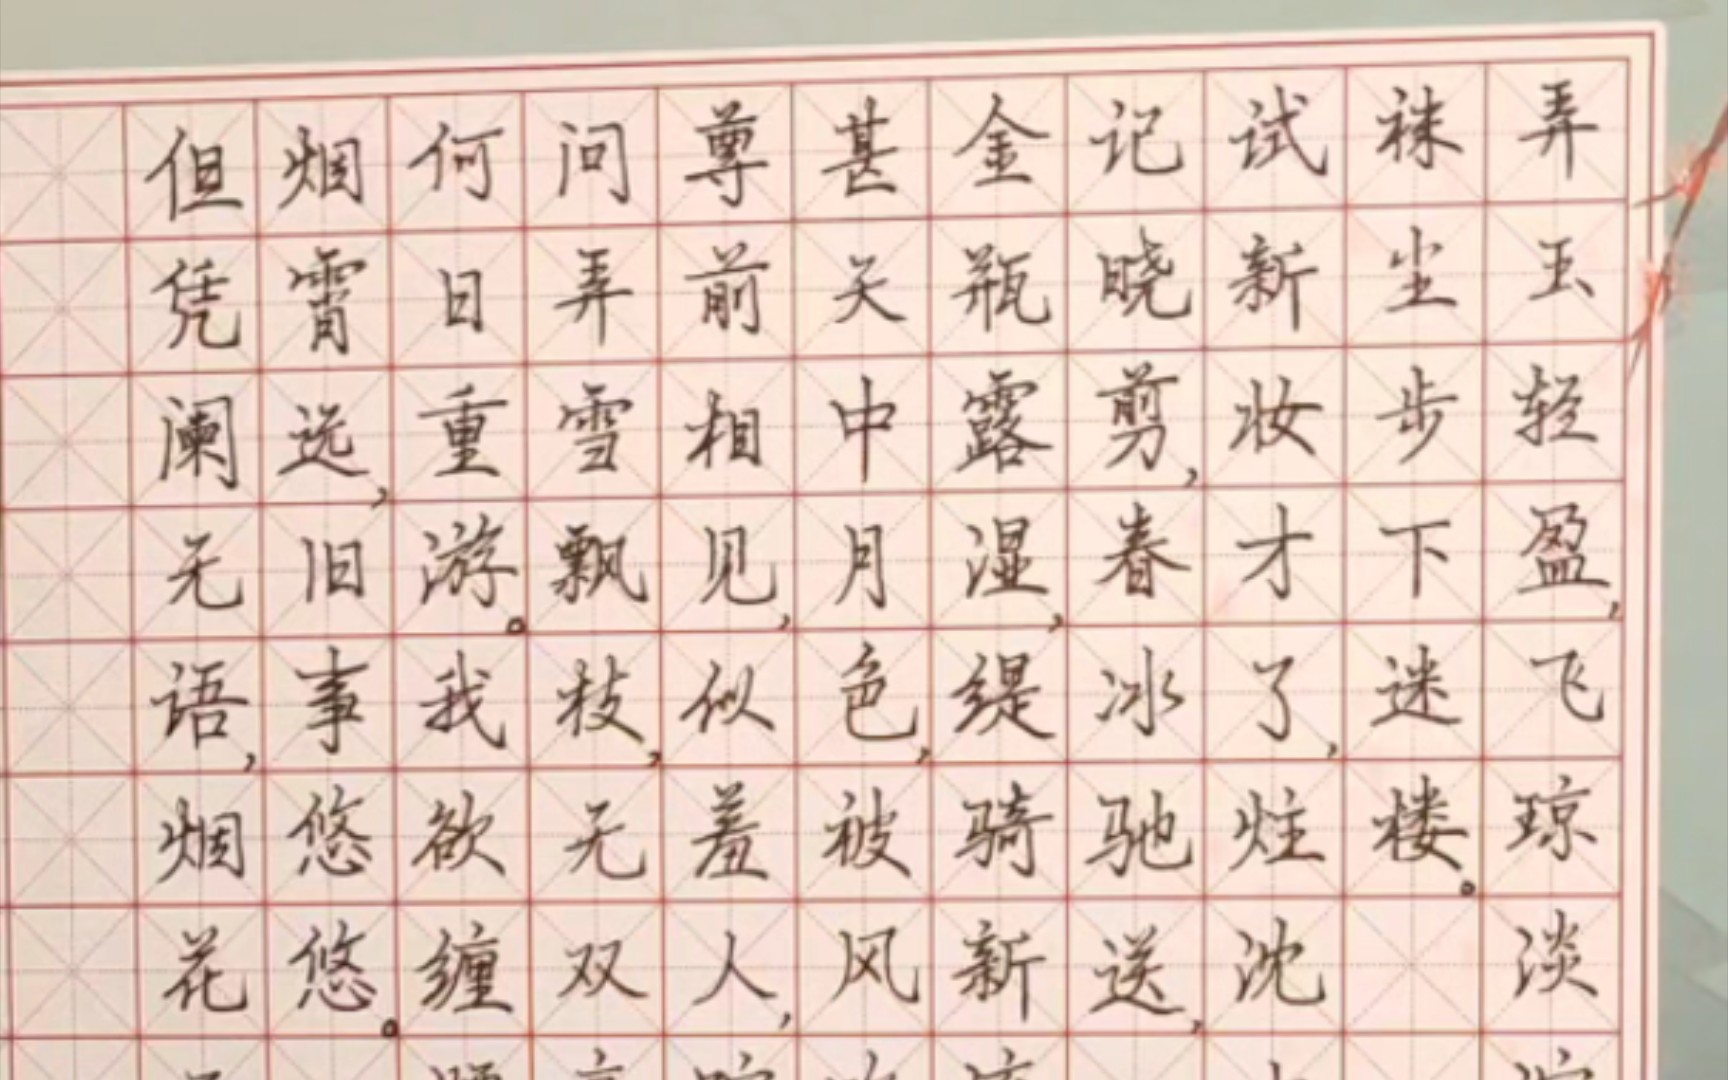 弄玉轻盈,飞琼淡
袜尘步下迷楼。
试新妆才了,炷沈
记晓剪,春冰驰送,
金瓶露湿,缇骑新
甚天中月色,被风
尊前相见,似羞人,
问弄雪飘枝,无双
何日重游。我欲缠
烟霄远,旧事悠悠。
但凭阑无语,烟花